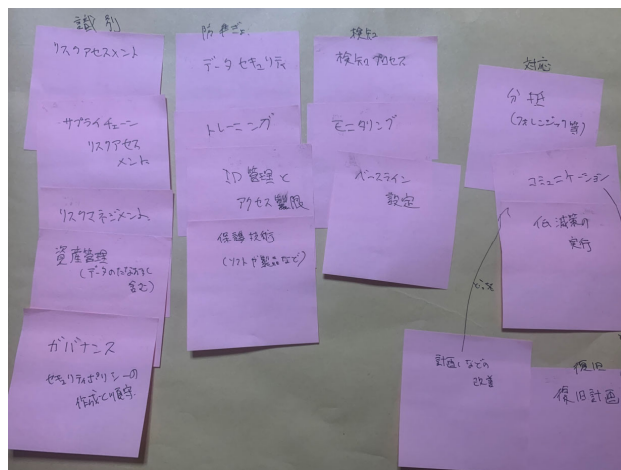 識別
リスクアセスメント
サプライチェーン
リスクアセス
メント
リスクマネジメント
資産管理
(データのたなおろし
含む)
ガバナンス
セキュリティポリシーの
作成と順守
防ぎょ
データセキュリティ
トレーニング
ID管理と
アクセス制限
保護技術
(ソフトや製品など)
検知
検知プロセス
モニタリング
ベースライン
設定
対応
分析
(フォレンジック等)
コミュニケーション
低減策の
実行
計画しなどの
改善
復旧
復旧計画